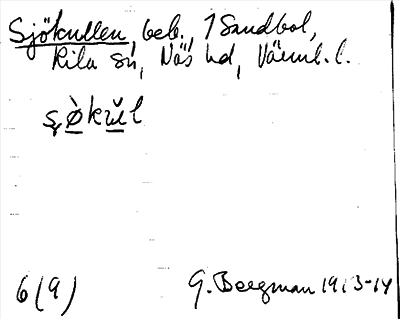 Sjökullen, beb., 1 Sandbol,
Kila sn, Näs hd, Värml. l.
ʂø̀kŭl
6(9) G. Bergman 1913-14